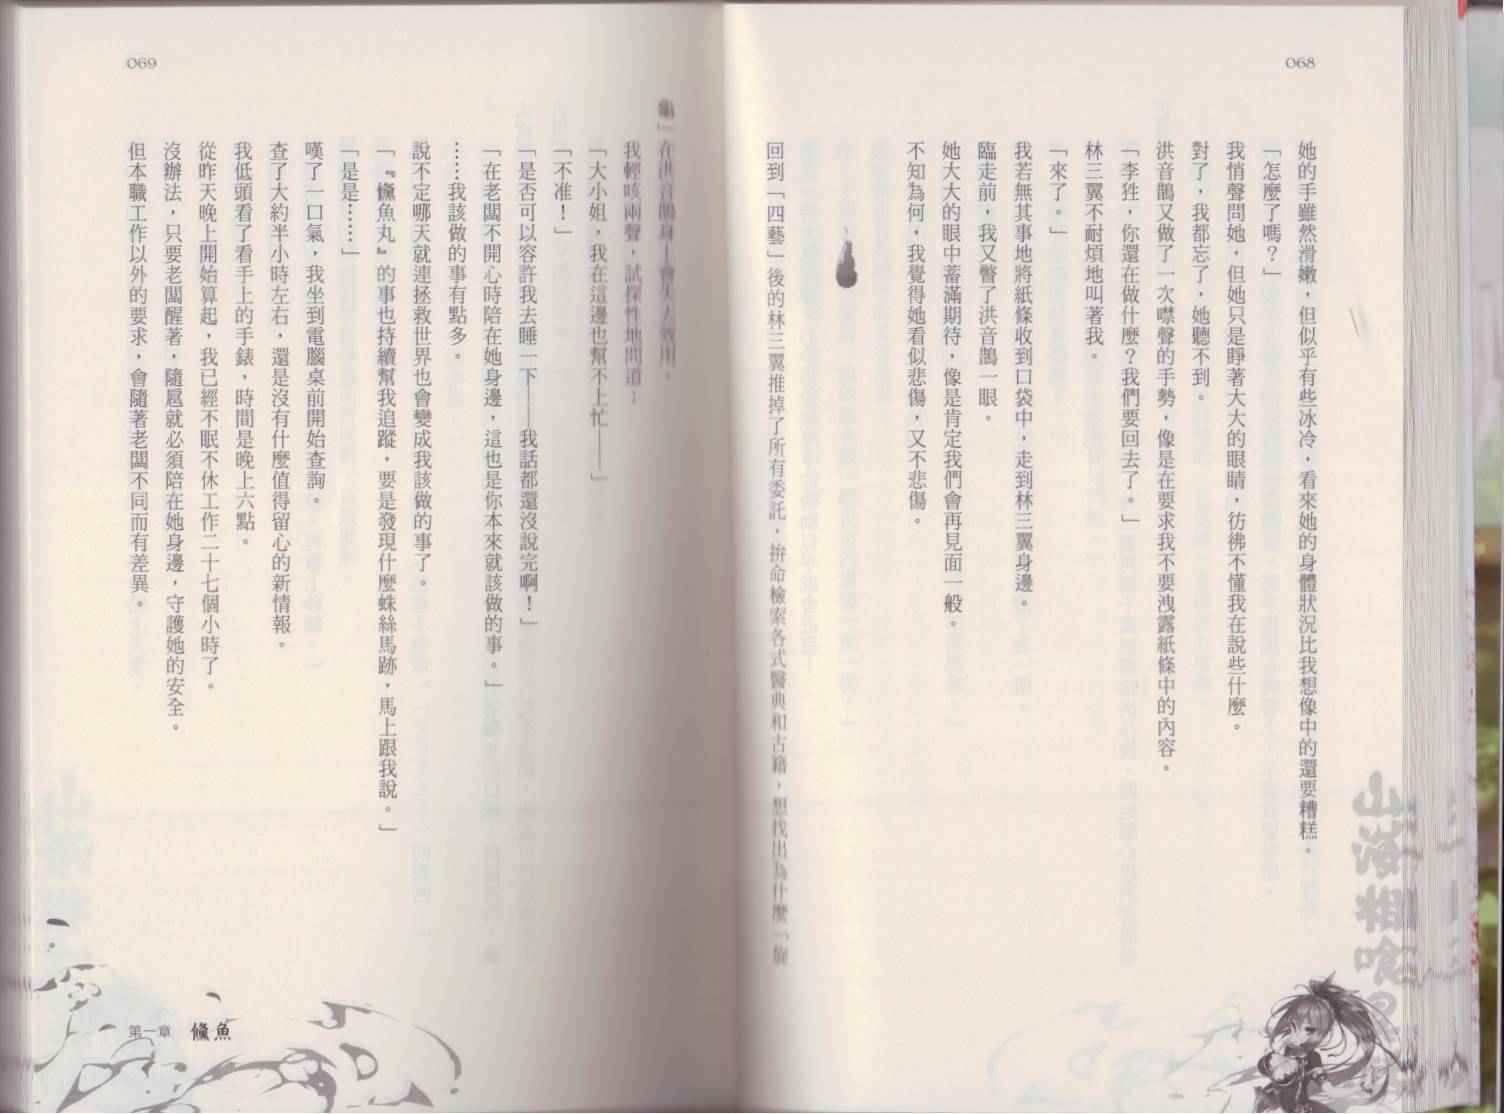 068
她的手雖然滑嫩，但似乎有些冰冷，看來她的身體狀況比我想像中的還要糟糕。
「怎麼了嗎？」
我悄聲問她，但她只是睜著大大的眼睛，彷彿不懂我在說些什麼。
對了，我都忘了，她聽不到。
洪音鵲又做了一次噤聲的手勢，像是在要求我不要洩露紙條中的內容。
「李狌，你還在做什麼？我們要回去了。」
林三翼不耐煩地叫著我。
「來了。」
我若無其事地將紙條收到口袋中，走到林三翼身邊。
臨走前，我又瞥了洪音鵲一眼。
她大大的眼中蓄滿期待，像是肯定我們會再見面一般。
不知為何，我覺得她看似悲傷，又不悲傷。
回到「四藝」後的林三翼推掉了所有委託，拚命檢索各式醫典和古籍，想找出為什麼「旋
山海相喰
069
龜」在洪音鵲身上會失去效用。
我輕咳兩聲，試探性地問道：
「大小姐，我在這邊也幫不上忙——」
「不准！」
「是否可以容許我去睡一下——我話都還沒說完啊！」
「在老闆不開心時陪在她身邊，這也是你本來就該做的事。」
……我該做的事有點多。
說不定哪天就連拯救世界也會變成我該做的事了。
「『儵魚丸』的事也持續幫我追蹤，要是發現什麼蛛絲馬跡，馬上跟我說。」
「是是……」
嘆了一口氣，我坐到電腦桌前開始查詢。
查了大約半小時左右，還是沒有什麼值得留心的新情報。
我低頭看了看手上的手錶，時間是晚上六點。
從昨天晚上開始算起，我已經不眠不休工作二十七個小時了。
沒辦法，只要老闆醒著，隨扈就必須陪在她身邊，守護她的安全。
但本職工作以外的要求，會隨著老闆不同而有差異。
第一章 儵魚